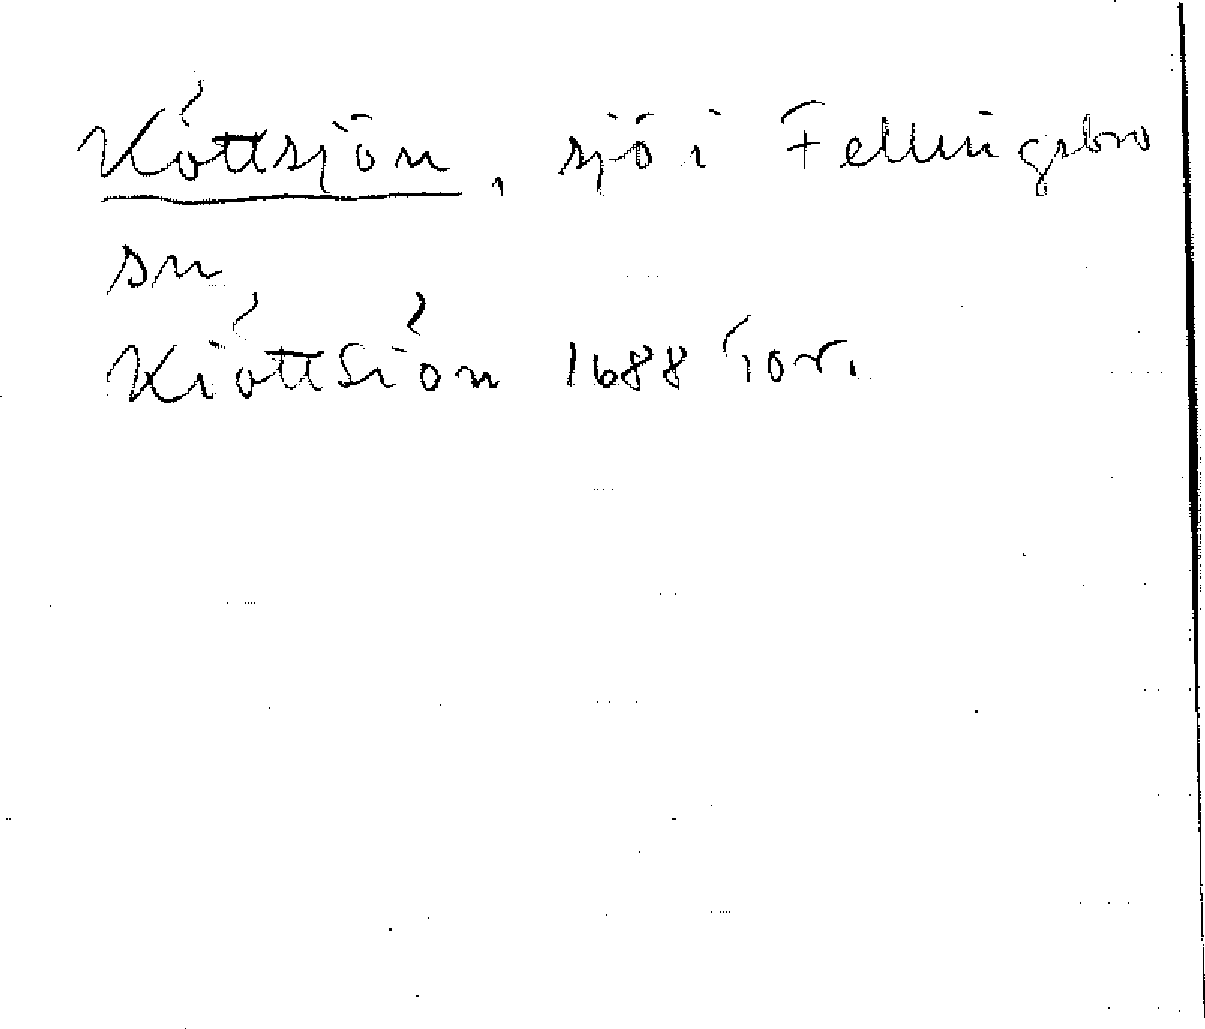 Köttsjön, sjö i Fellingsbro
sn
KiöttSiön 1688 jor.